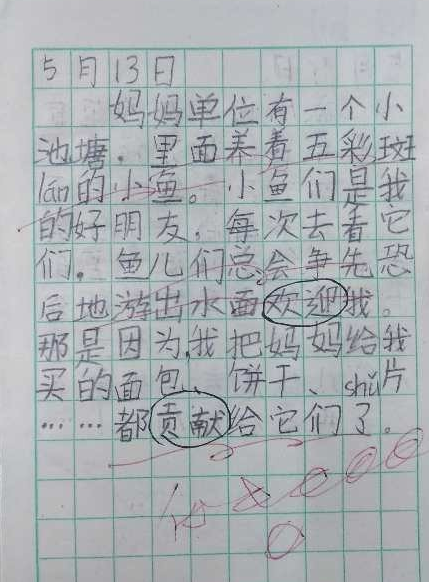 5月13日
妈妈单位有一个小
池塘，里面养着五彩斑
lán的小鱼。小鱼们是我
的好朋友，每次去看它
们，鱼儿们总会争先恐
后地游出水面欢迎我。
那是因为，我把妈妈给我
买的面包、饼干、shǔ片
……都贡献给它们了。